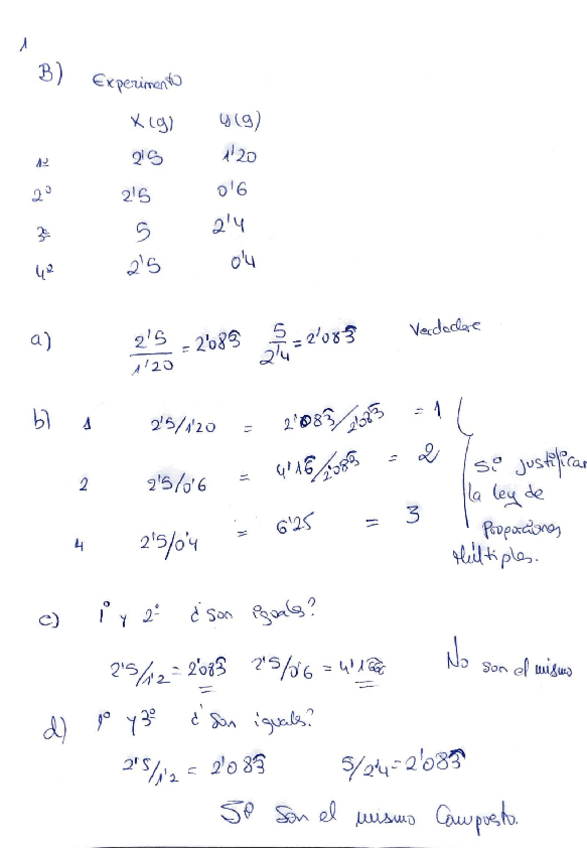 1
B) Experimento
X(g) y(g)
1º 2'5 1'20
2º 2'5 0'6
3º 5 2'4
4º 2'5 0'4
a) 2'5/1'20 = 2'083 5/2'4 = 2'083 Verdadera
b) 1 2'5/1'20 = 2'083/2'083 = 1
2 2'5/0'6 = 4'16/2'083 = 2
4 2'5/0'4 = 6'25 = 3
Si justifican
la ley de
Proporciones
Múltiples.
c) 1º y 2º ¿son iguales?
2'5/1'2 = 2'083 2'5/0'6 = 4'166 No son el mismo
d) 1º y 3º ¿Son iguales?
2'5/1'2 = 2'083 5/2'4 = 2'083
Si Son el mismo Compuesto.